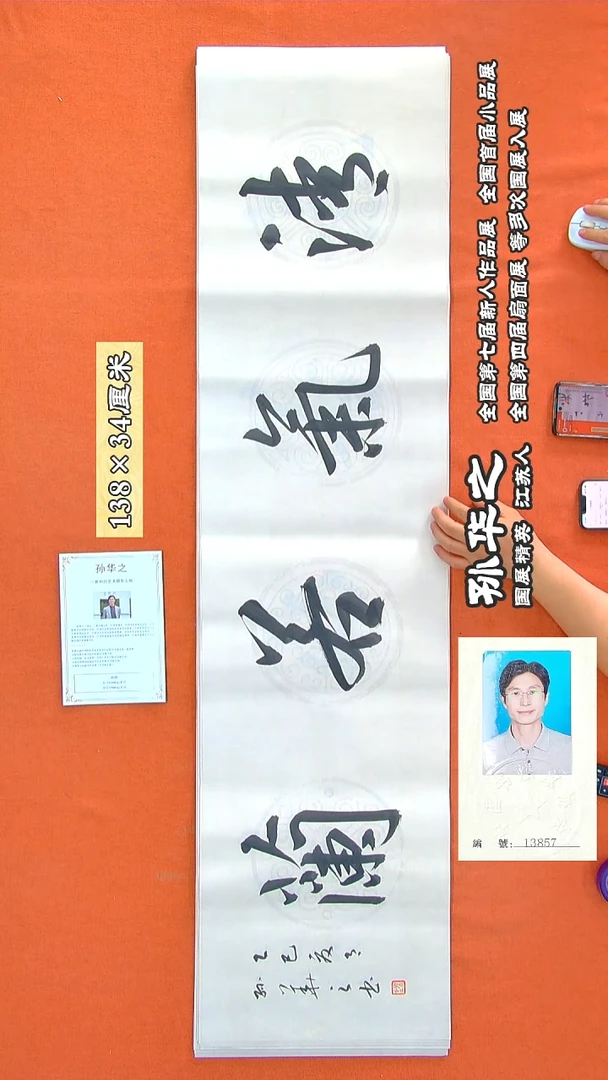 清氣若蘭
乙巳夏月
孫華之书
138×34厘米
孙华之
孙华之
国展精英 江苏人
全国第七届新人作品展 全国首届小品展
全国第四届扇面展 等多次国展入展
編號: 13857